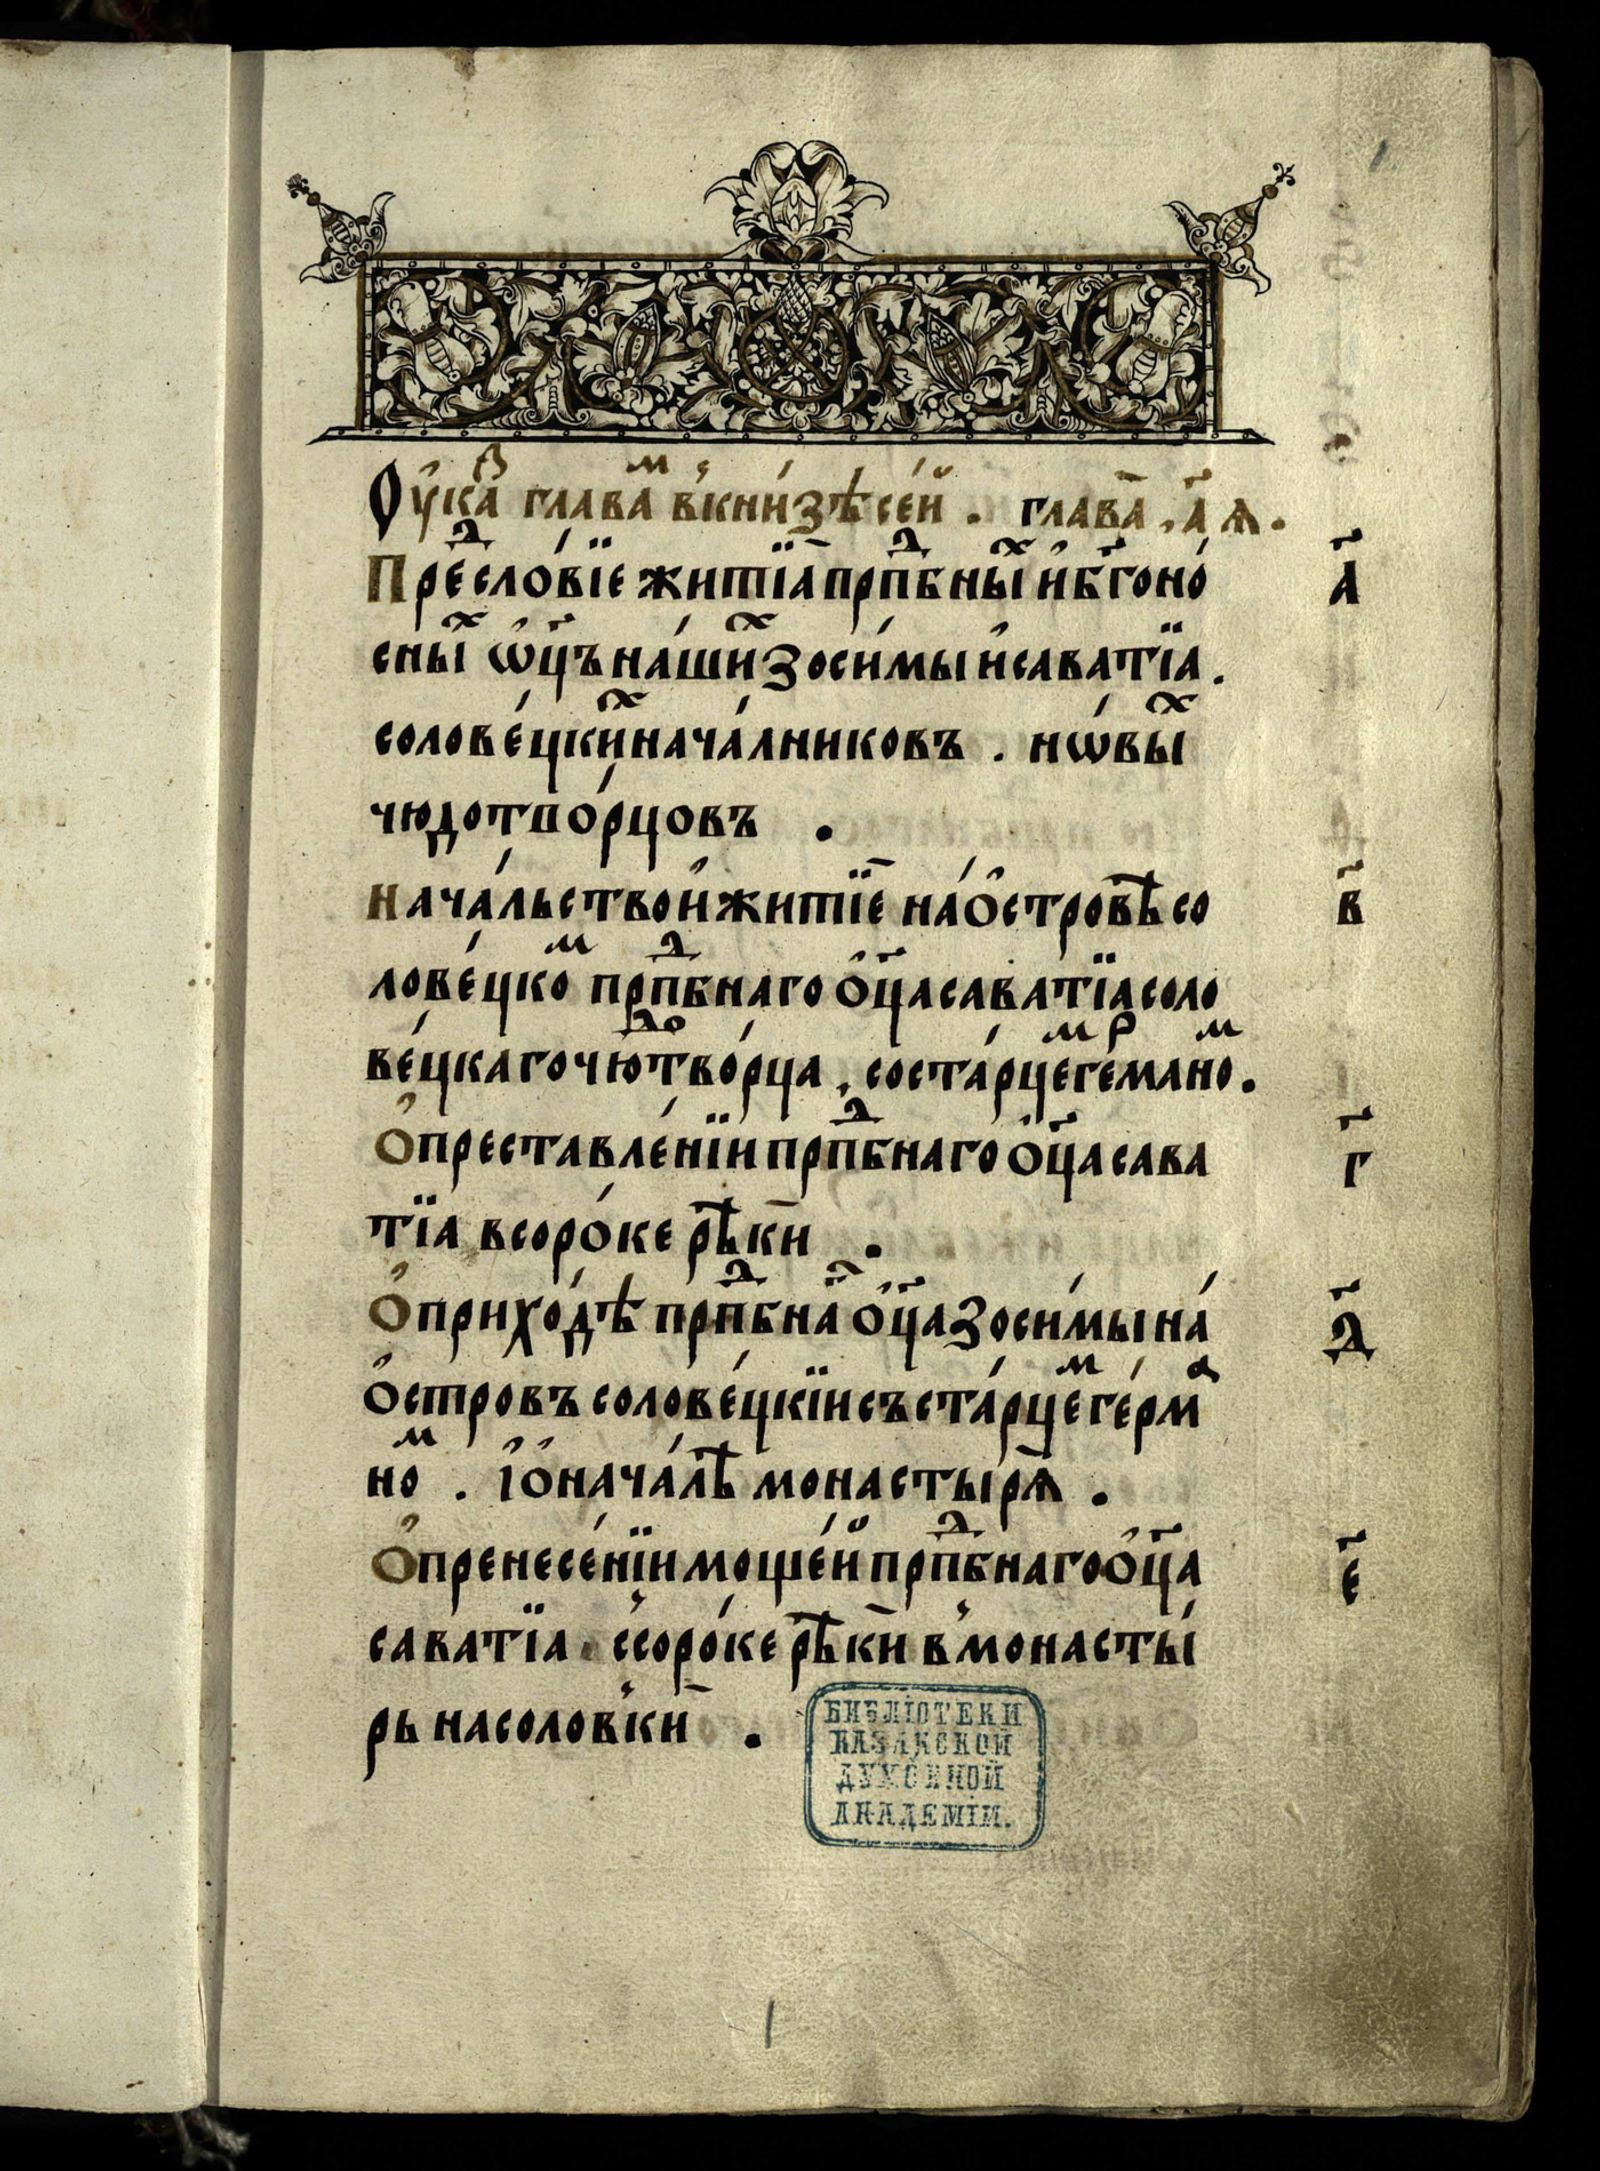 Ѹ҆ка́ᷥ глава́ᷟ в҆кни́зѣ се́й . глава̀ , а҃ ѧ .
Пре́ⷣсловїе житїѧ̀ прпⷣбны́ⷯ и҆ бг҃оно́ а҃
сны́ⷯ ѡ҆ц҃ъ на́шиⷯ зоси́мы и҆ саватїа .
солове́цкиⷯ нача́лниковъ . нѡ́выⷯ
чюдотво́рцовъ .
Нача́льство и҆ житїѐ на́ о҆стровѣ̀ со в҃
лове́цкоᷟ прпⷣбнаго о҆ц҃а саватїа соло
ве́цкаго чю́ⷣⷪтво́рца , со ста́рцеᷟ ге́ⷬманоᷟ .
О҆ преставле́нїи прпⷣбнаго о҆ц҃а сава г҃
тїа в соро́ке рѣкѝ .
О҆ прихо́дѣ прпⷣбнаⷢ о҆ц҃а зоси́мы на́ д҃
о҆стровъ солове́цкїи съ ста́рцеᷟ ге́рмⷶ
ноᷟ . і҆ о҆ нача́лѣ̀ монастырѧ̀ .
О҆ пренесе́нїи моще́й прпⷣбнаго о҆ц҃а е҃
саватїа с҆соро́ке рѣкѝ в҆ монасты́
рь на соло́вкѝ .
БИБЛІОТЕКИ
КАЗАНСКОЙ
ДУХОВНОЙ
АКАДЕМІИ.
1